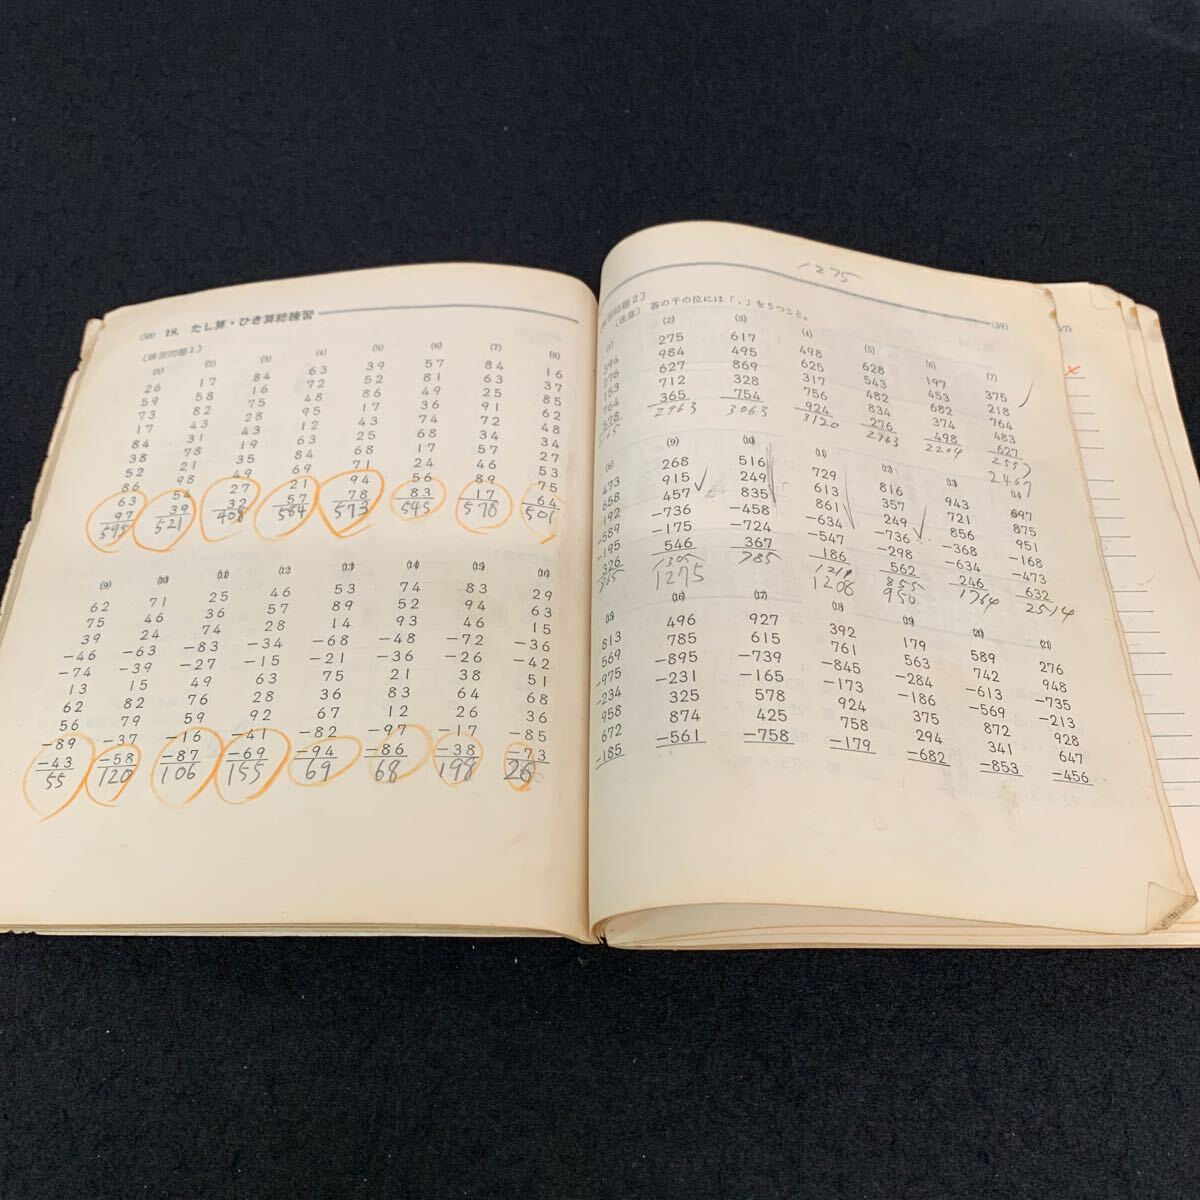 (38) 18. たし算・ひき算総練習
〔練習問題1〕
(1) (2) (3) (4) (5) (6) (7) (8)
26 17 84 63 39 57 84 16
59 58 16 72 52 81 63 37
73 75 48 86 49 25 85
82 28 95 17 36 91 62
17 43 43 12 43 74 72 48
84 31 19 63 25 68 34 34
38 78 35 84 68 17 57 27
52 21 49 69 71 24 46 53
86 98 27 21 94 56 89 75
63 54 32 57 78 83 17 64
97 39
595 521 408 564 573 545 578 501
(9) (10) (11) (12) (13) (14) (15) (16)
62 71 25 46 53 74 83 29
75 46 36 57 89 52 94 63
39 24 74 28 14 93 46 15
-46 -63 -83 -34 -68 -48 -72 -36
-74 -39 -27 -15 -21 -36 -26 -42
13 15 49 63 75 21 38 51
62 82 76 28 36 83 64 68
56 79 59 92 67 12 26 36
-89 -37 -16 -41 -82 -97 -17 -85
-43 -58 -87 -69 -94 -86 -38 -73
55 120 106 155 69 68 198 26
1275
〔練習問題2〕
〔注意〕 答の千の位には「,」をうつこと。
(39)
(1) (2) (3) (4) (5) (6) (7)
394 275 617 498 628 197 375
276 984 495 625 543 453 218
153 627 869 317 482 682 764
764 712 328 756 834 374 483
578 365 754 924 276 498 627
2963 3063 3120 2763 2204 2557
2467
(8) (9) (10) (11) (12) (13) (14)
473 268 516 729 816 943 697
658 915 249 613 357 721 875
-192 457 835 861 249 856 951
-589 -736 -458 -634 -736 -368 -168
-195 -175 -724 -547 -298 -634 -473
326 546 367 186 562 246 632
965 1305 785 1211 855 1764 2514
1275 1208 950
(15) (16) (17) (18) (19) (20) (21)
813 496 927 392 179 589 276
569 785 615 761 563 742 948
-975 -895 -739 -845 -284 -613 -735
-234 -231 -165 -173 -186 -569 -213
958 325 578 924 375 872 928
672 874 425 758 294 341 647
-185 -561 -758 -179 -682 -853 -456